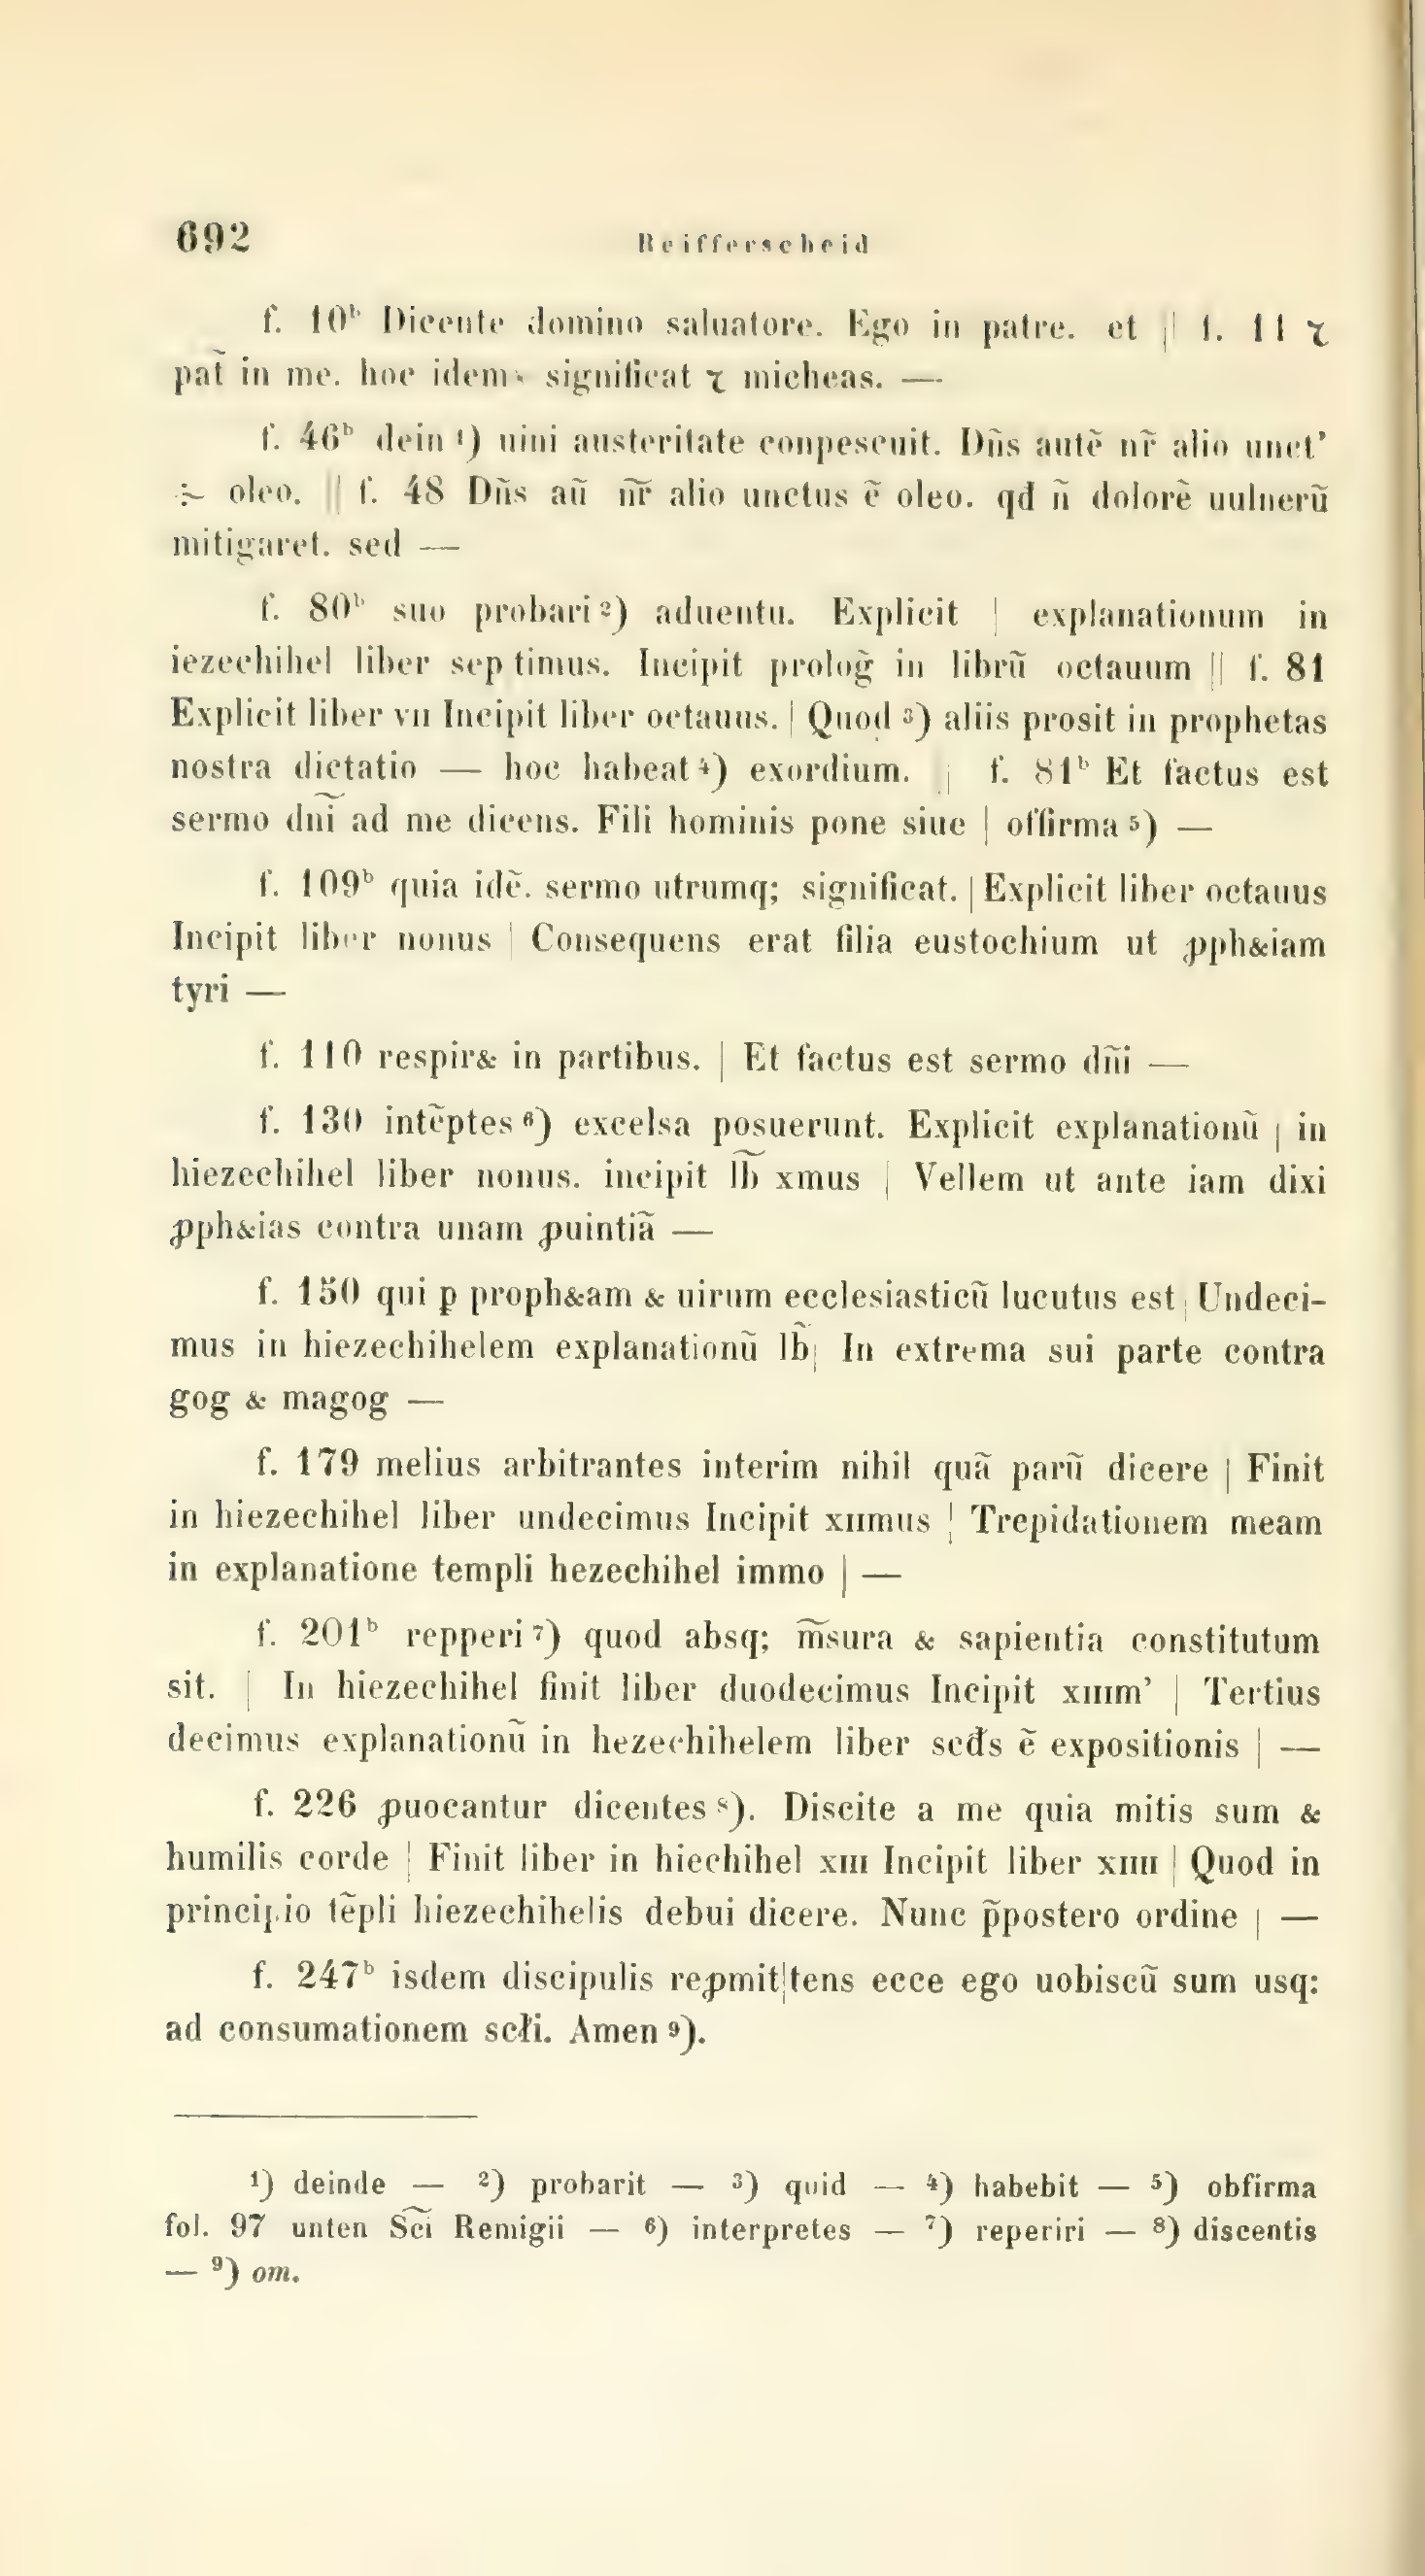 692 Reifferscheid
f. 10ᵇ Dicente domino saluatore. Ego in patre. et || f. 11 ⁊
pat̃ in me. hoc idem significat ⁊ micheas. —
f. 46ᵇ dein ¹) uini austeritate conpescuit. Dñs autẽ nr̃ alio unct’
÷ oleo. || f. 48 Dñs aũ nr̃ alio unctus ẽ oleo. qđ ñ dolorẽ uulnerũ
mitigaret. sed —
f. 80ᵇ suo probari ²) aduentu. Explicit | explanationum in
iezechihel liber sep timus. Incipit prolog̃ in librũ octauum || f. 81
Explicit liber vii Incipit liber octauus. | Quod ³) aliis prosit in prophetas
nostra dictatio — hoc habeat ⁴) exordium. | f. 81ᵇ Et factus est
sermo dni͂ ad me dicens. Fili hominis pone siue | offirma ⁵) —
f. 109ᵇ quia idẽ. sermo utrumq; significat. | Explicit liber octauus
Incipit liber nonus | Consequens erat filia eustochium ut ꝓph&iam
tyri —
f. 110 respir& in partibus. | Et factus est sermo dñi —
f. 130 intẽptes ⁶) excelsa posuerunt. Explicit explanationũ | in
hiezechihel liber nonus. incipit lb̃ xmus | Vellem ut ante iam dixi
ꝓph&ias contra unam ꝓuintiã —
f. 150 qui ꝑ proph&am & uirum ecclesiasticũ lucutus est | Undeci-
mus in hiezechihelem explanationũ lb̃ | In extrema sui parte contra
gog & magog —
f. 179 melius arbitrantes interim nihil quã parũ dicere | Finit
in hiezechihel liber undecimus Incipit xiimus | Trepidationem meam
in explanatione templi hezechihel immo | —
f. 201ᵇ repperi ⁷) quod absq; m̃sura & sapientia constitutum
sit. | In hiezechihel finit liber duodecimus Incipit xiiim’ | Tertius
decimus explanationũ in hezechihelem liber scđs ẽ expositionis | —
f. 226 ꝓuocantur dicentes ⁸). Discite a me quia mitis sum &
humilis corde | Finit liber in hiechihel xiii Incipit liber xiiii | Quod in
principio tẽpli hiezechihelis debui dicere. Nunc p̃postero ordine | —
f. 247ᵇ isdem discipulis reꝓmit|tens ecce ego uobiscũ sum usq:
ad consumationem scłi. Amen ⁹).
¹) deinde — ²) probarit — ³) quid — ⁴) habebit — ⁵) obfirma
fol. 97 unten Sc͂i Remigii — ⁶) interpretes — ⁷) reperiri — ⁸) discentis
— ⁹) om.